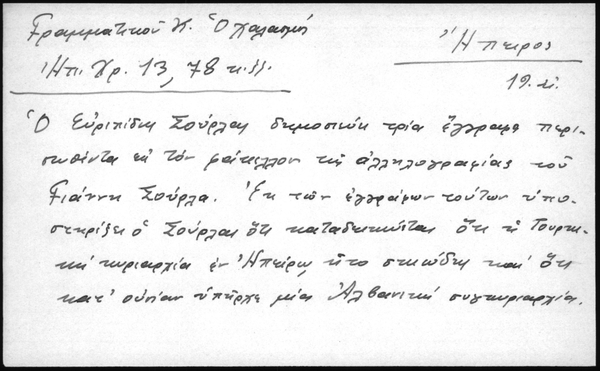 Γραμματικοῦ Κ. Ὁ χαλασμός
Ἤπειρος
Ἠπ. Χρ. 13, 78 κ.ἑ.
19. αἰ.
Ὁ Εὐριπίδης Σούρλας δημοσιεύει τρία ἔγγραφα περι-
σωθέντα ἐκ τὸν φάκελλον τῆς ἀλληλογραφίας τοῦ
Γιάννη Σούρλα. Ἐκ τῶν ἐγγράφων τούτων ὑπο-
στηρίζει ὁ Σούρλας ὅτι καταδεικνύεται ὅτι ἡ Τουρκι-
κή κυριαρχία ἐν Ἠπείρῳ ἦτο σκιώδης καί ὅτι
κατ' οὐσίαν ὑπῆρχε μία Ἀλβανική συγκυριαρχία.